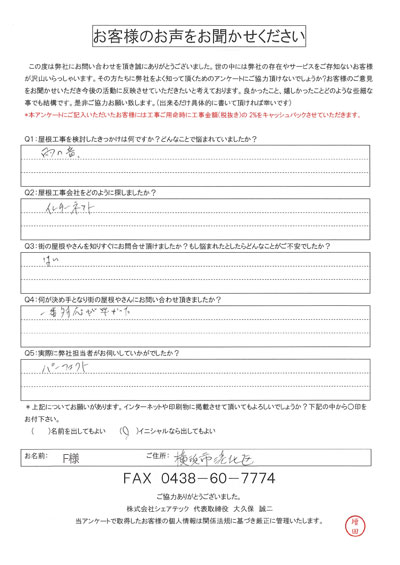 お客様のお声をお聞かせください
この度は弊社にお問い合わせを頂き誠にありがとうございました。世の中には弊社の存在やサービスをご存知ないお客様
が沢山いらっしゃいます。その方たちに弊社をよく知って頂くためのアンケートにご協力頂けないでしょうか?お客様のご意見
をお聞かせいただき今後の活動に反映させていただきたいと考えております。良かったこと、嬉しかったことどのような些細な
事でも結構です。是非ご協力お願い致します。(出来るだけ具体的に書いて頂ければ幸いです)
*本アンケートにご記入いただいたお客様には工事ご用命時に工事金額(税抜き)の2%をキャッシュバックさせていただきます。
Q1:屋根工事を検討したきっかけは何ですか?どんなことで悩まれていましたか?
雨の音、
Q2:屋根工事会社をどのように探しましたか?
インターネット
Q3:街の屋根やさんを知りすぐにお問合せ頂けましたか?もし悩まれたとしたらどんなことがご不安でしたか?
はい
Q4:何が決め手となり街の屋根やさんにお問い合わせ頂きましたか?
一番対応が早かった
Q5:実際に弊社担当者がお伺いしていかがでしたか?
パーフェクト
*上記についてお願いがあります。インターネットや印刷物に掲載させて頂いてもよろしいでしょうか?下記の中から〇印を
お付け下さい。
( )名前を出してもよい (〇)イニシャルなら出してもよい
お名前: F様 ご住所: 横浜市港北区
FAX 0438-60-7774
ご協力ありがとうございました。
株式会社シェアテック 代表取締役 大久保 誠二
当アンケートで取得したお客様の個人情報は関係法規に基づき厳正に管理いたします。
増田